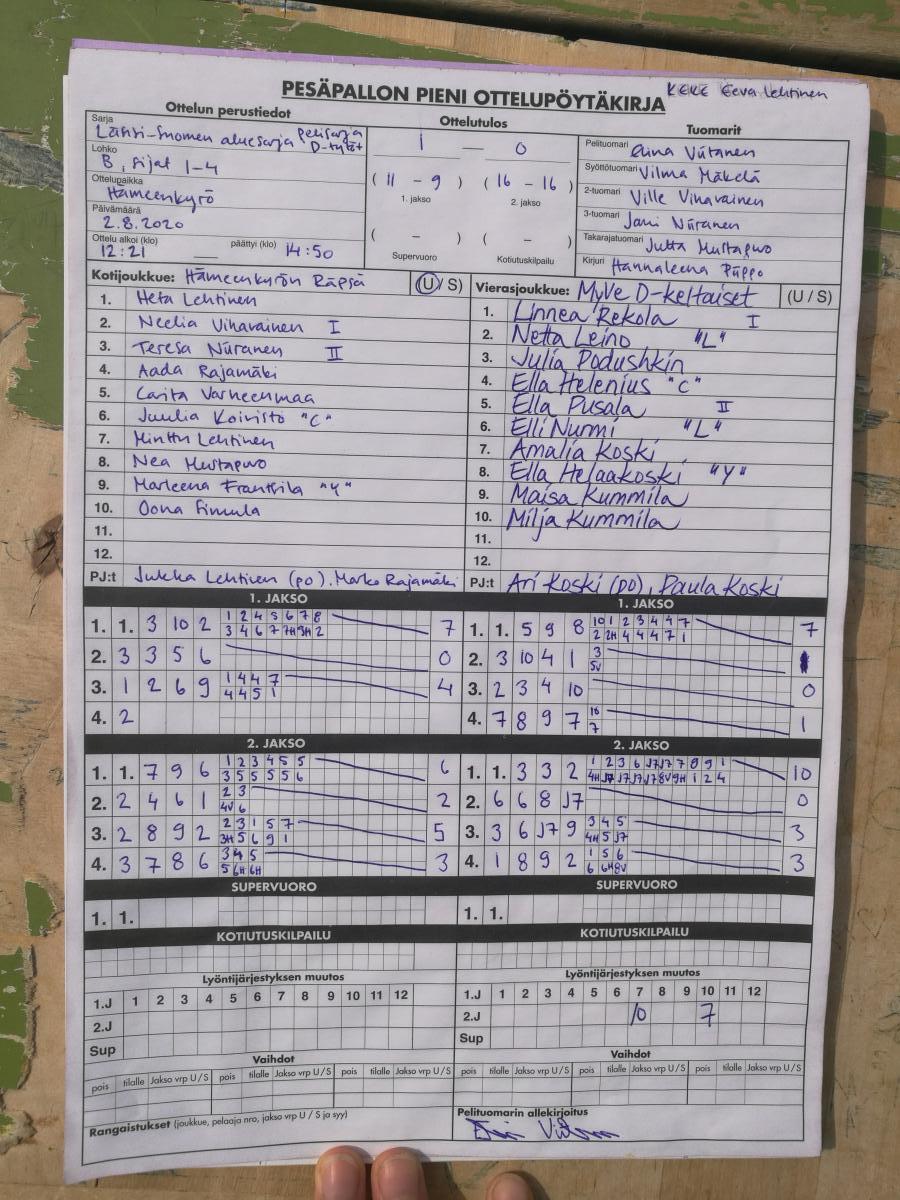 PESÄPALLON PIENI OTTELUPÖYTÄKIRJA
KEKE Eeva Lehtinen
Ottelun perustiedot
Sarja
Länsi-Suomen aluesarja pelisarja D-tytöt
Lohko
B, sijat 1-4
Ottelupaikka
Hämeenkyrö
Päivämäärä
2.8.2020
Ottelu alkoi (klo) päättyi (klo)
12:21 14:50
Ottelutulos
1 — 0
( 11 - 9 ) ( 16 - 16 )
1. jakso 2. jakso
( - ) ( - )
Supervuoro Kotiutuskilpailu
Tuomarit
Pelituomari Elina Viitanen
Syöttötuomari Vilma Mäkelä
2-tuomari Ville Vihavainen
3-tuomari Jani Niiranen
Takarajatuomari Jutta Mustapuro
Kirjuri Hannaleena Piippo
Kotijoukkue: Hämeenkyrön Räpsä (U/S)
1. Heta Lehtinen
2. Neelia Vihavainen I
3. Teresa Niiranen II
4. Aada Rajamäki
5. Carita Varheenmaa
6. Juulia Koivisto "C"
7. Minttu Lehtinen
8. Nea Mustapuro
9. Marleena Franttila "Y"
10. Oona Simula
11.
12.
PJ:t Jukka Lehtinen (po), Marko Rajamäki
Vierasjoukkue: MyVe D-keltaiset (U/S)
1. Linnea Rekola I
2. Netta Leino "L"
3. Julia Podushkin
4. Ella Helenius "C"
5. Ella Pusala II
6. Elli Nurmi "L"
7. Amalia Koski
8. Ella Heljaakoski "Y"
9. Maisa Kummila
10. Milja Kummila
11.
12.
PJ:t Ari Koski (po), Paula Koski
1. JAKSO
1. 1. 3 10 2 1 2 4 5 6 7 8 7
3 4 6 7 7H 9H 2
2. 3 3 5 6 0
3. 1 2 6 9 1 4 4 7 4
4 4 5 1
4. 2
1. JAKSO
1. 1. 5 9 8 10 1 2 3 4 4 7 7
2 2H 4 4 4 7 1
2. 3 10 4 1 3
5V
3. 2 3 4 10 0
4. 7 8 9 7 10 1
7
2. JAKSO
1. 1. 7 9 6 1 2 3 4 5 5 6
3 5 5 5 5 6
2. 2 4 6 1 2 3 2
4V 6
3. 2 8 9 2 2 3 1 5 7 5
3H 5 6 9 1
4. 3 7 8 6 3 4 5 3
5 6H 6H
2. JAKSO
1. 1. 3 3 2 1 2 3 6 J7 J7 7 8 9 1 10
4H J7 J7 J7 J7 8V 9H 1 2 4
2. 6 6 8 J7 0
3. 3 6 J7 9 3 4 5 3
4H 5 J7
4. 1 8 9 2 1 5 6 3
6 6H 8V
SUPERVUORO
1. 1.
SUPERVUORO
1. 1.
KOTIUTUSKILPAILU
KOTIUTUSKILPAILU
Lyöntijärjestyksen muutos
1.J 1 2 3 4 5 6 7 8 9 10 11 12
2.J
Sup
Lyöntijärjestyksen muutos
1.J 1 2 3 4 5 6 7 8 9 10 11 12
2.J 10 7
Sup
Vaihdot
pois tilalle Jakso vrp U/S pois tilalle Jakso vrp U/S pois tilalle Jakso vrp U/S
Vaihdot
pois tilalle Jakso vrp U/S pois tilalle Jakso vrp U/S pois tilalle Jakso vrp U/S
Rangaistukset (joukkue, pelaaja nro, jakso vrp U / S ja syy)
Pelituomarin allekirjoitus